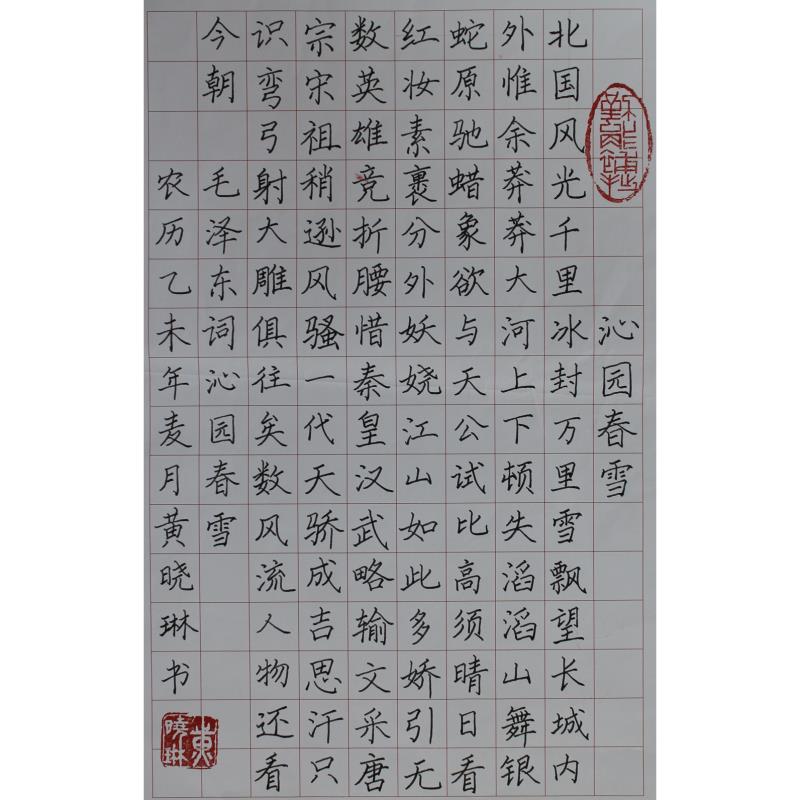 沁园春雪
北国风光千里冰封万里雪飘望长城内
外惟余莽莽大河上下顿失滔滔山舞银
蛇原驰蜡象欲与天公试比高须晴日看
红妆素裹分外妖娆江山如此多娇引无
数英雄竞折腰惜秦皇汉武略输文采唐
宗宋祖稍逊风骚一代天骄成吉思汗只
识弯弓射大雕俱往矣数风流人物还看
今朝 毛泽东词沁园春雪
农历乙未年麦月黄晓琳书
黄
曉琳